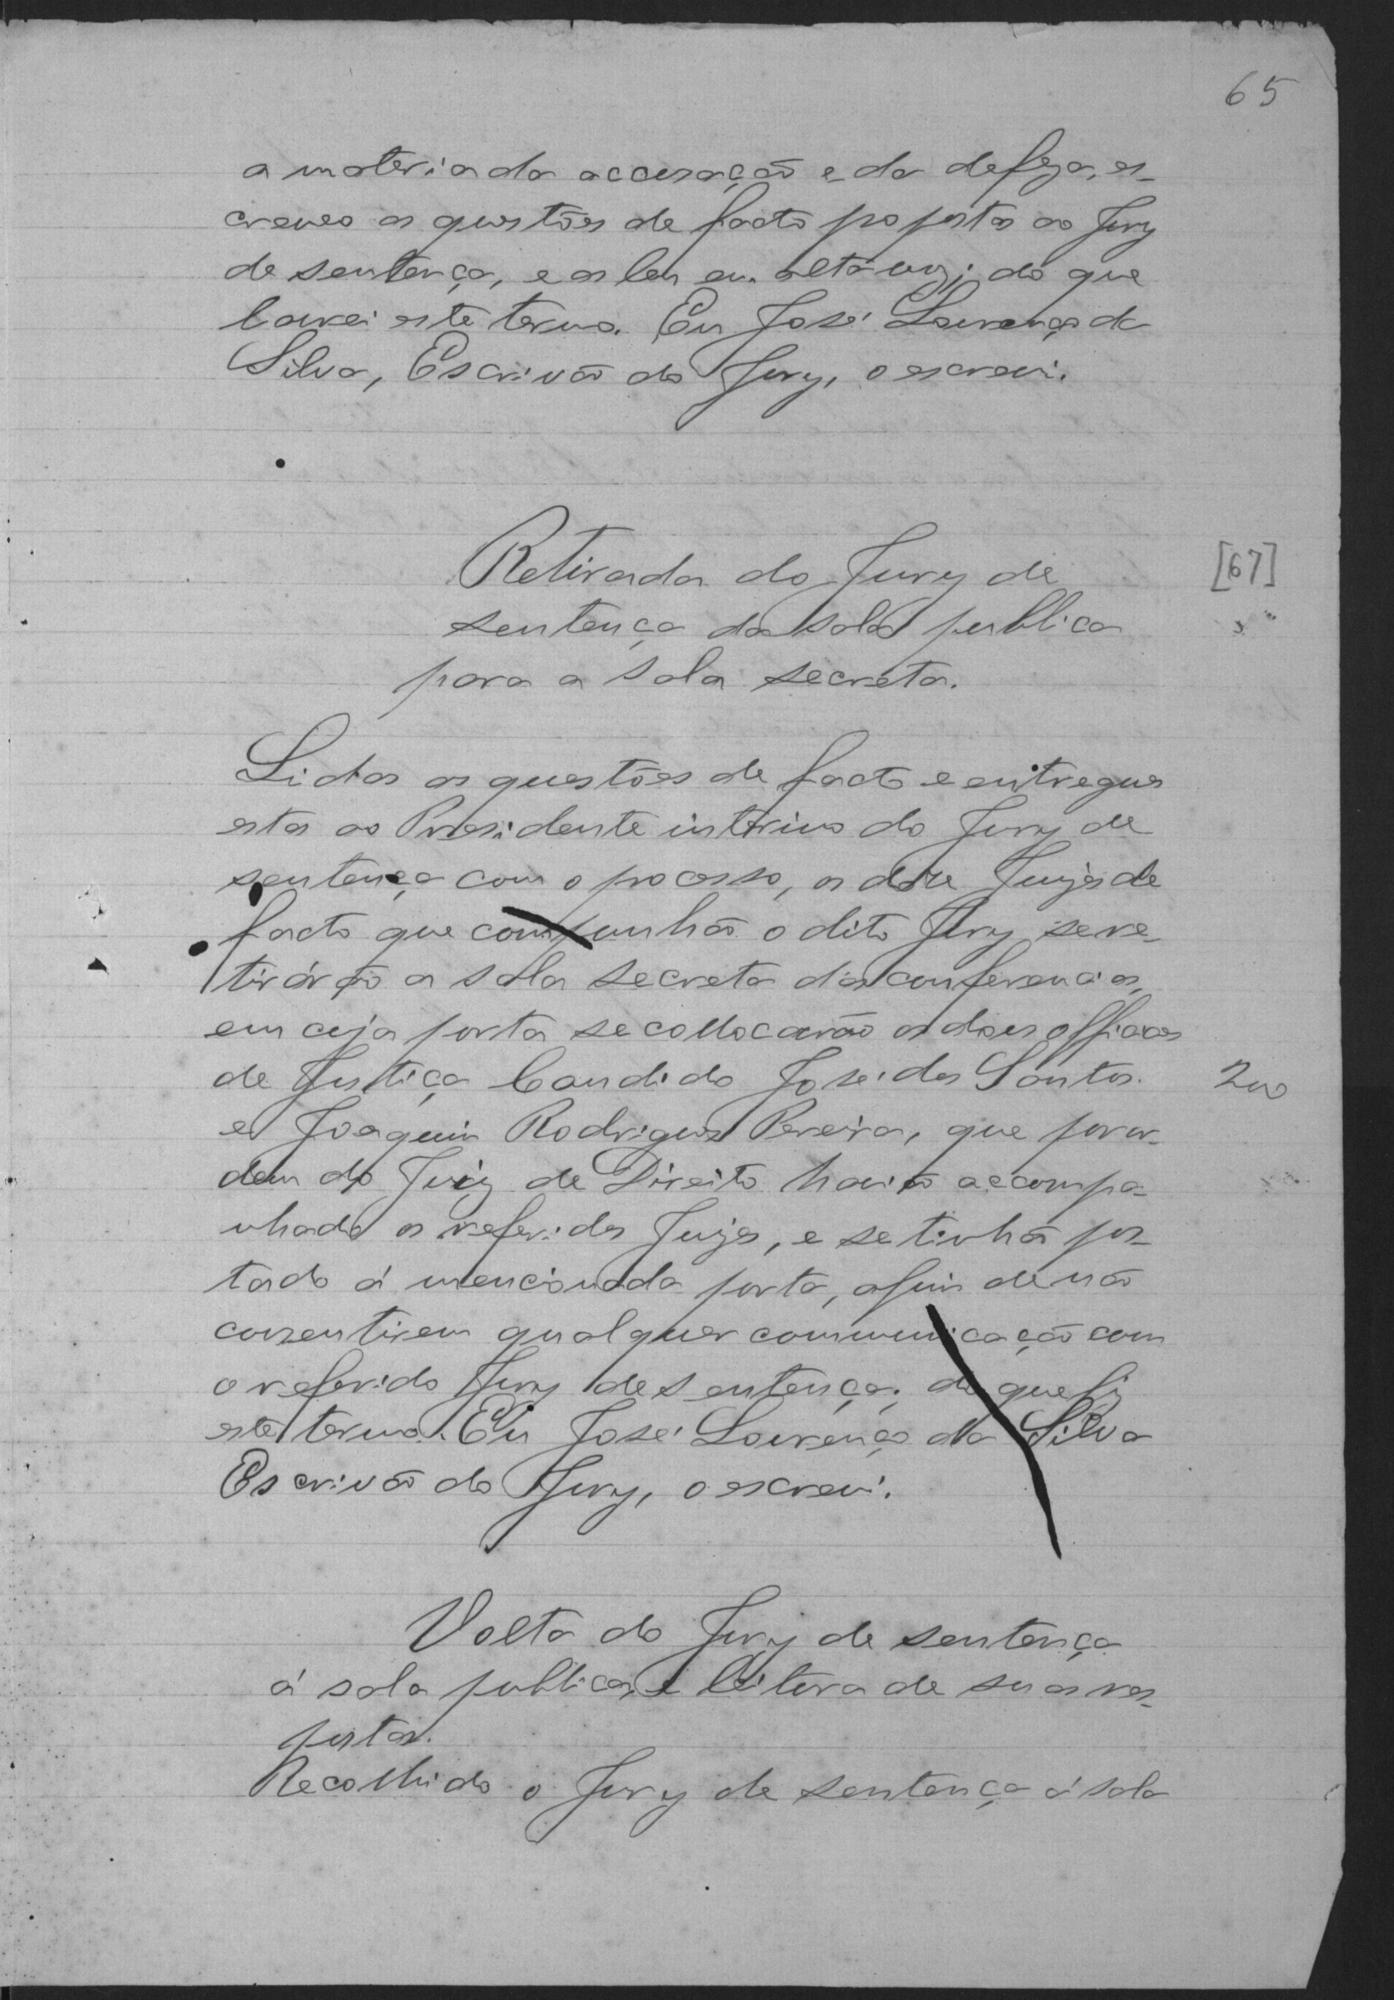 65
a materia da accusação e da defeza, es-
creveo as questões de facto propostas ao Jury
de sentença, e as leu em alta voz; do que
lavrei este termo. Eu José Lourenço da
Silva, Escrivão do Jury, o escrevi.
Retirada do Jury de
[67]
sentença da sala publica
para a sala secreta.
Lidas as questões de facto e entregues
estas ao Presidente interino do Jury de
sentença com o processo, os doze Juizes de
facto que compunhão o dito Jury se re-
tirárão a sala secreta das conferencias,
em cuja porta se collocarão os dous officiaes
de Justiça Candido José dos Santos
200
e Joaquim Rodrigues Pereira, que por or-
dem do Juiz de Direito havião accompa-
nhado os referidos Juizes, e se tinhão pos-
tado á mencionada porta, afim de não
consentirem qualquer communicação com
o referido Jury de sentença; do que fiz
este termo. Eu José Lourenço da Silva
Escrivão do Jury, o escrevi.
Volta do Jury de sentença
á sala publica, e leitura de suas res-
postas.
Recolhido o Jury de sentença á sala